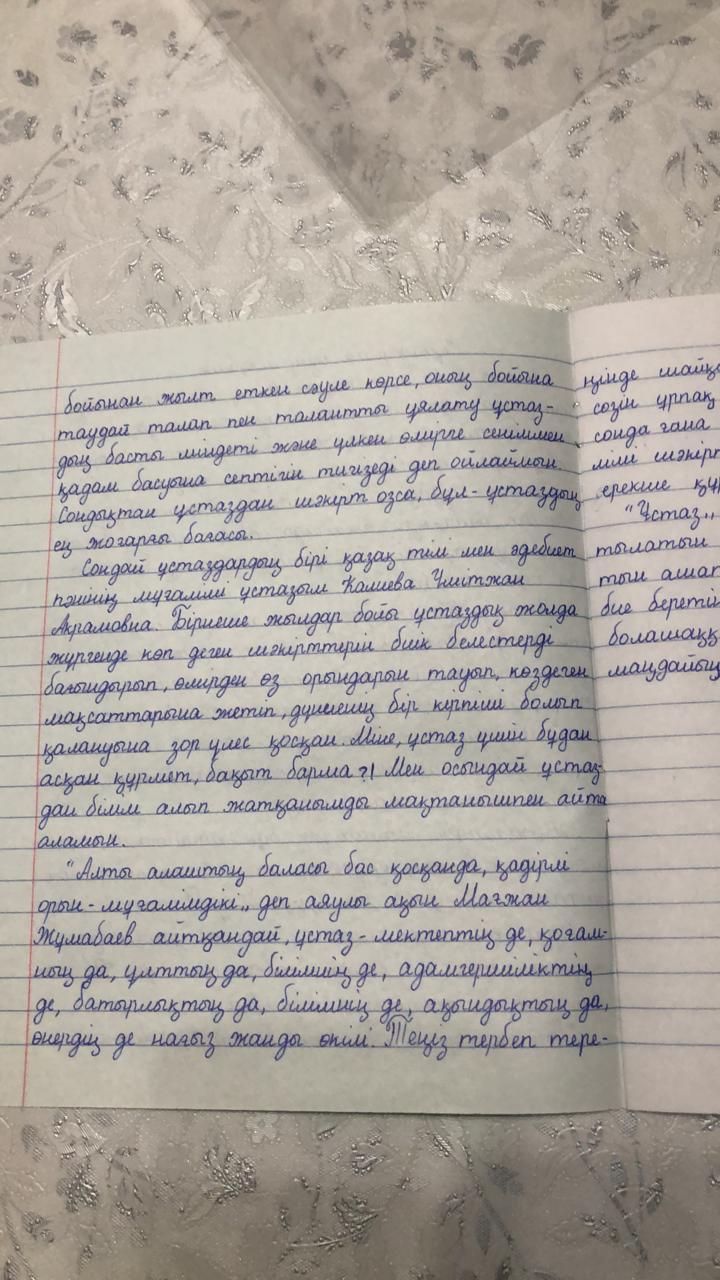 бойынан жылт еткен сәуле көрсе, оның бойына
таудай талап пен талантты ұялату ұстаз-
дың басты міндеті және үлкен өмірге сеніммен
қадам басуына септігін тигізеді деп ойлаймын.
Сондықтан ұстаздан шәкірт озса, бұл - ұстаздың
ең жоғарғы бағасы.
Сондай ұстаздардың бірі қазақ тілі мен әдебиет
пәнінің мұғалімі ұстазым Калиева Үмітжан
Акрамовна. Бірнеше жылдар бойы ұстаздық жолда
жүргенде көп деген шәкірттерін биік белестерді
бағындырып, өмірден өз орындарын тауып, көздеген
мақсаттарына жетіп, дүниенің бір кірпіші болып
қалануына зор үлес қосқан. Міне, ұстаз үшін бұдан
асқан құрмет, бақыт барма?! Мен осындай ұстаз-
дан білім алып жатқанымды мақтанышпен айта
аламын.
"Алты алаштың баласы бас қосқанда, қадірлі
орын - мұғалімдікі,, деп аяулы ақын Мағжан
Жұмабаев айтқандай, ұстаз - мектептің де, қоғам-
ның да, ұлттың да, білімнің де, адамгершіліктің
де, батырлықтың да, білімнің де, ақындықтың да,
өнердің де нағыз жанды өкілі. Теңіз тербеп тере-
ңінде
сөзін ұрпақ
сонда ғана
ерекше
"Ұстаз,,
тылатын
тын
бие беретін
болашаққ
маңдайың